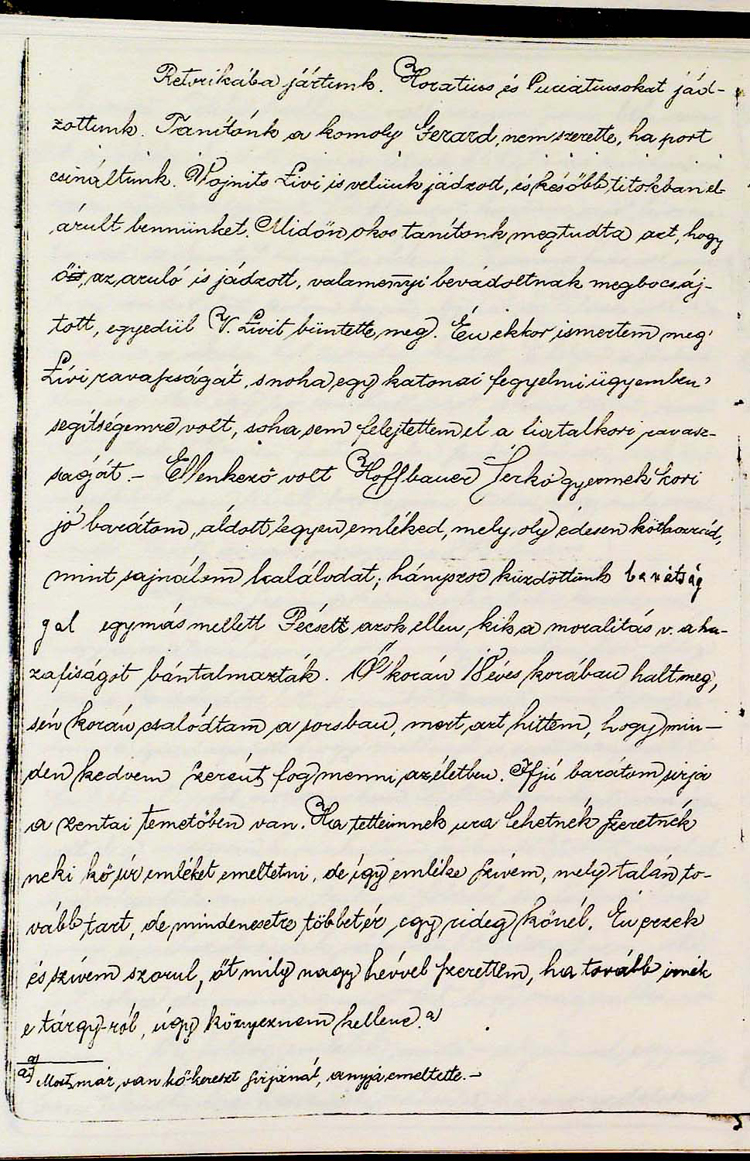 Retorikába jártunk. Horatius és Curiatiusokat ját-
zottunk. Tanítónk a komoly Gerard, nem szerette, ha port
csináltunk. Vojnits Livi is velünk jádzott, és később titokban el-
árult bennünket. Midőn okos tanítonk megtudta azt, hogy
ő is, az aruló is jádzott, valamennyi bevádoltnak megbocsáj-
tott, egyedül V. Livit büntette meg. Én ekkor ismertem meg
Livi ravaszságát, s noha egy katonai fegyelmi ügyemben
segítségemre volt, soha sem felejtettem el a fiatalkori ravasz-
ságát. – Ellenkező volt Hoffbauer Ferkó gyermek kori
jó barátom, áldott legyen emléked, mely oly édesen köt hozzád,
mint sajnálom halálodat; hányszor küzdöttünk barátság
gal egymás mellett Pécsett azok ellen, kik a moralitás v. a ha-
zafiságot bántalmazták. Ő korán 18 éves korában halt meg,
s én korán csalódtam a sorsban, mert azt hittem, hogy min-
den kedvem szerént fog menni az életben. Ifjú barátom sírja
a zentai temetőben van. Ha tetteimnek ura lehetnék szeretnék
neki kő sír emléket emeltetni, de így emléke szívem, mely talán to-
vább tart, de mindenesetre többet ér egy rideg kőnél. Én érzek
és szívem szorul, őt mily nagy hévvel szerettem, ha tovább irnék
e tárgy-ról, úgy könyeznem kellene. a)
a) Most már van kő-kereszt sírjánál, anyja emeltette. –